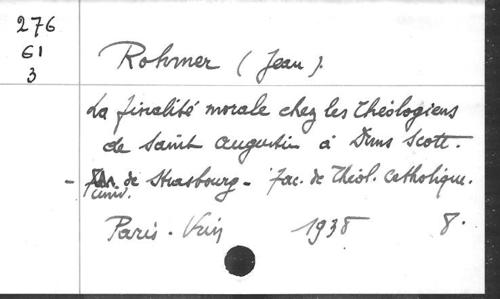 276
61
3
Rohmer (Jean).
La finalité morale chez les théologiens
de saint augustin à Duns Scott.
- univ. de Strasbourg - fac. de Théol. catholique.
Paris. Vrin 1938 8.